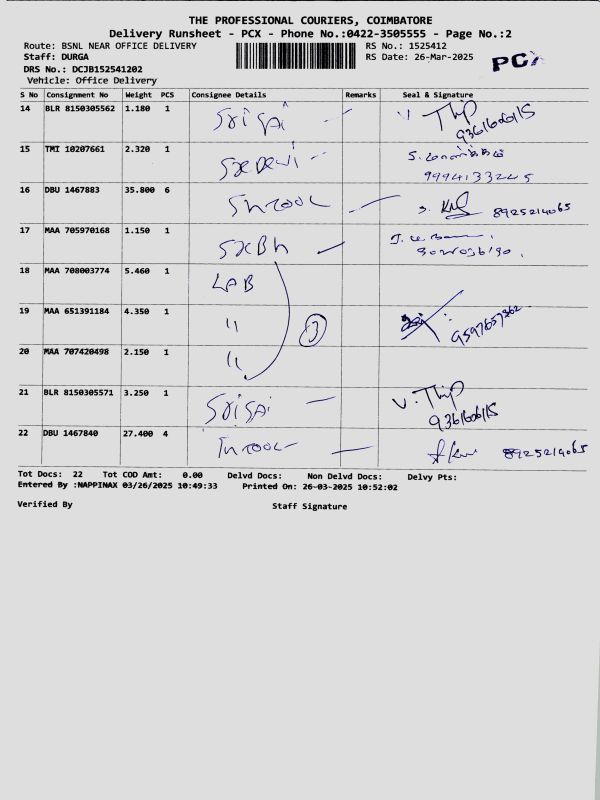 THE PROFESSIONAL COURIERS, COIMBATORE
Delivery Runsheet - PCX - Phone No.:0422-3505555 - Page No.:2
Route: BSNL NEAR OFFICE DELIVERY RS No.: 1525412
Staff: DURGA RS Date: 26-Mar-2025 PCX
DRS No.: DCJB152541202
Vehicle: Office Delivery
S No Consignment No Weight PCS Consignee Details Remarks Seal & Signature
14 BLR 8150305562 1.180 1 Sri Sai V. Thip
9361606115
15 TMI 10207661 2.320 1
9994133245
16 DBU 1467883 35.800 6 8925214065
17 MAA 705970168 1.150 1
18 MAA 708003774 5.460 1 LAB
19 MAA 651391184 4.350 1 " 3 9597657362
20 MAA 707420498 2.150 1 "
21 BLR 8150305571 3.250 1 Sri Sai V. Thip
9361606115
22 DBU 1467840 27.400 4 8925214065
Tot Docs: 22 Tot COD Amt: 0.00 Delvd Docs: Non Delvd Docs: Delvy Pts:
Entered By :NAPPINAX 03/26/2025 10:49:33 Printed On: 26-03-2025 10:52:02
Verified By Staff Signature